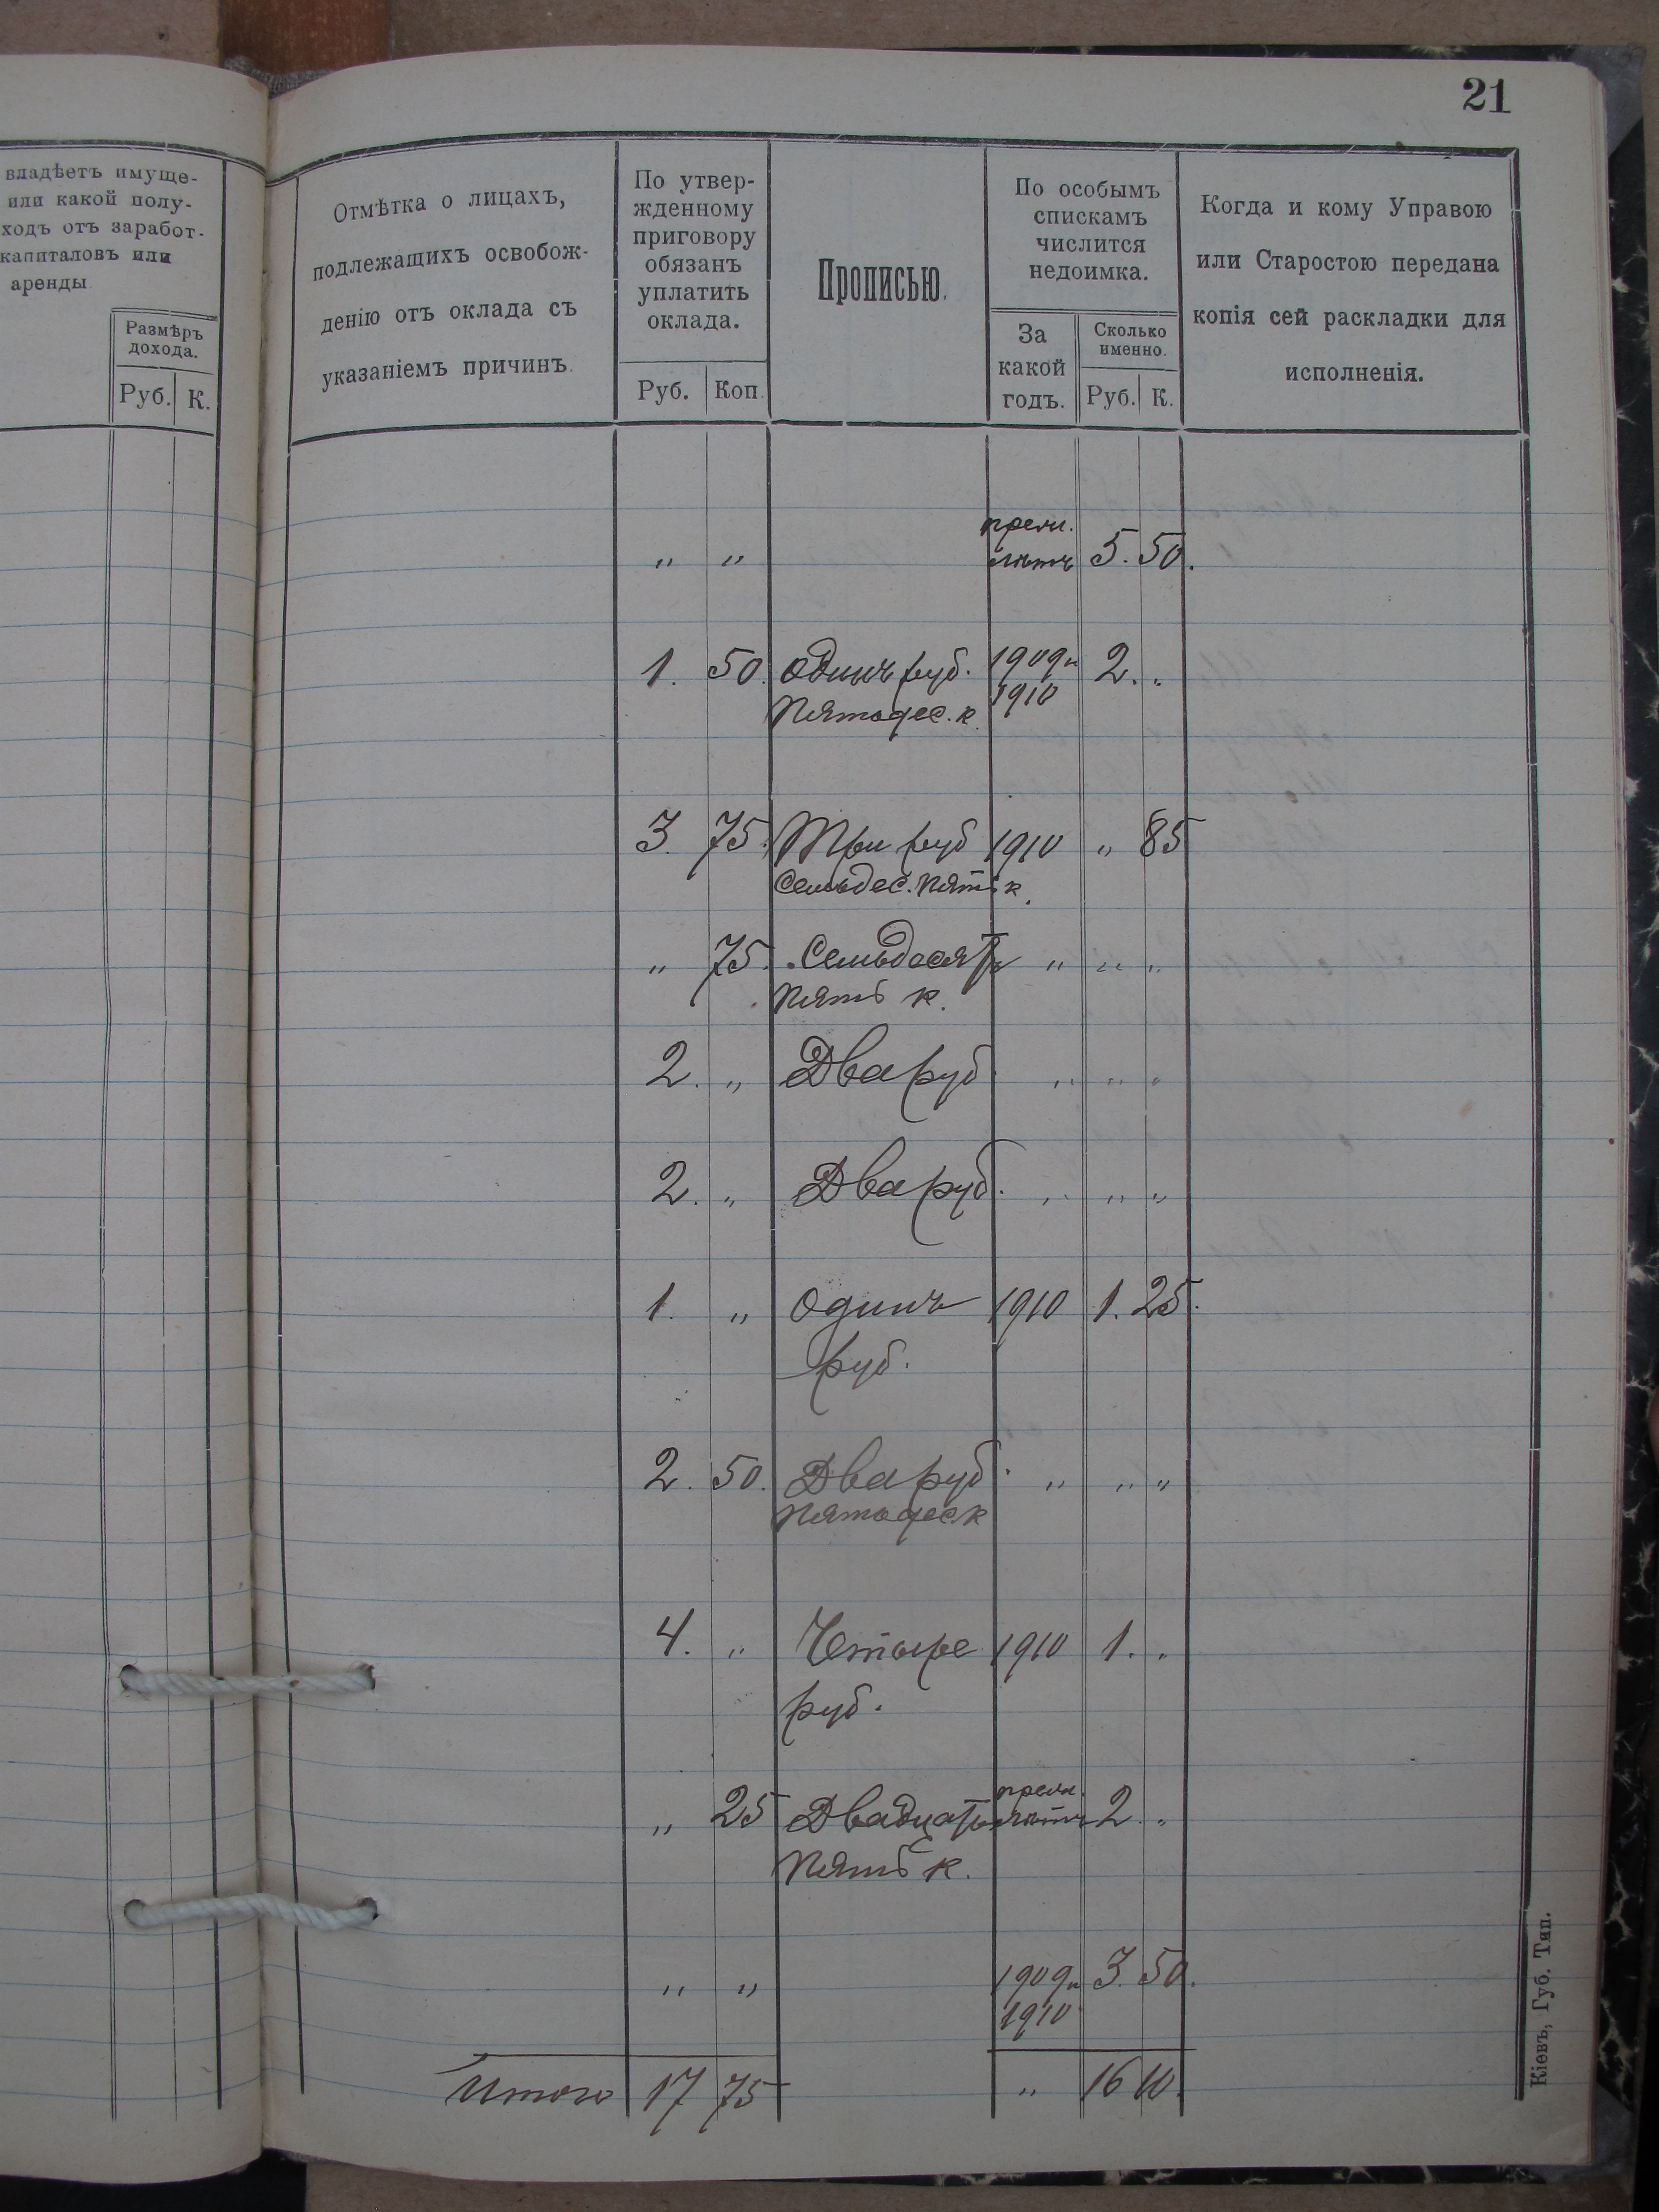 21
владѣетъ имуще-
или какой полу-
ходъ отъ заработ-
капиталовъ или
аренды
Размѣръ
дохода.
Руб. К.
Отмѣтка о лицахъ,
подлежащихъ освобож-
денію отъ оклада съ
указаніемъ причинъ.
По утвер-
жденному
приговору
обязанъ
уплатить
оклада.
Руб. Коп.
Прописью.
По особымъ
спискамъ
числится
недоимка.
За
какой
годъ.
Сколько
именно.
Руб. К.
Когда и кому Управою
или Старостою передана
копія сей раскладки для
исполненія.
" " 5. 50.
1. 50. Одинъ руб. 1909 и 2. "
Пятьдес. к. 1910
3. 75. Три руб 1910 " 85
Семьдес. пять к.
" 75. Семьдесятъ " " "
пять к.
2. " Два руб. " " "
2. " Два руб. " " "
1. " Одинъ 1910 1. 25.
руб.
2. 50. Два руб. " " "
Пятьдес. к
4. " Четыре 1910 1. "
руб.
" 25 Двадцать 2. "
пять к.
" " 1909 и 3. 50.
1910
Итого 17 75 " 16 10.
Кіевъ, Губ. Тип.